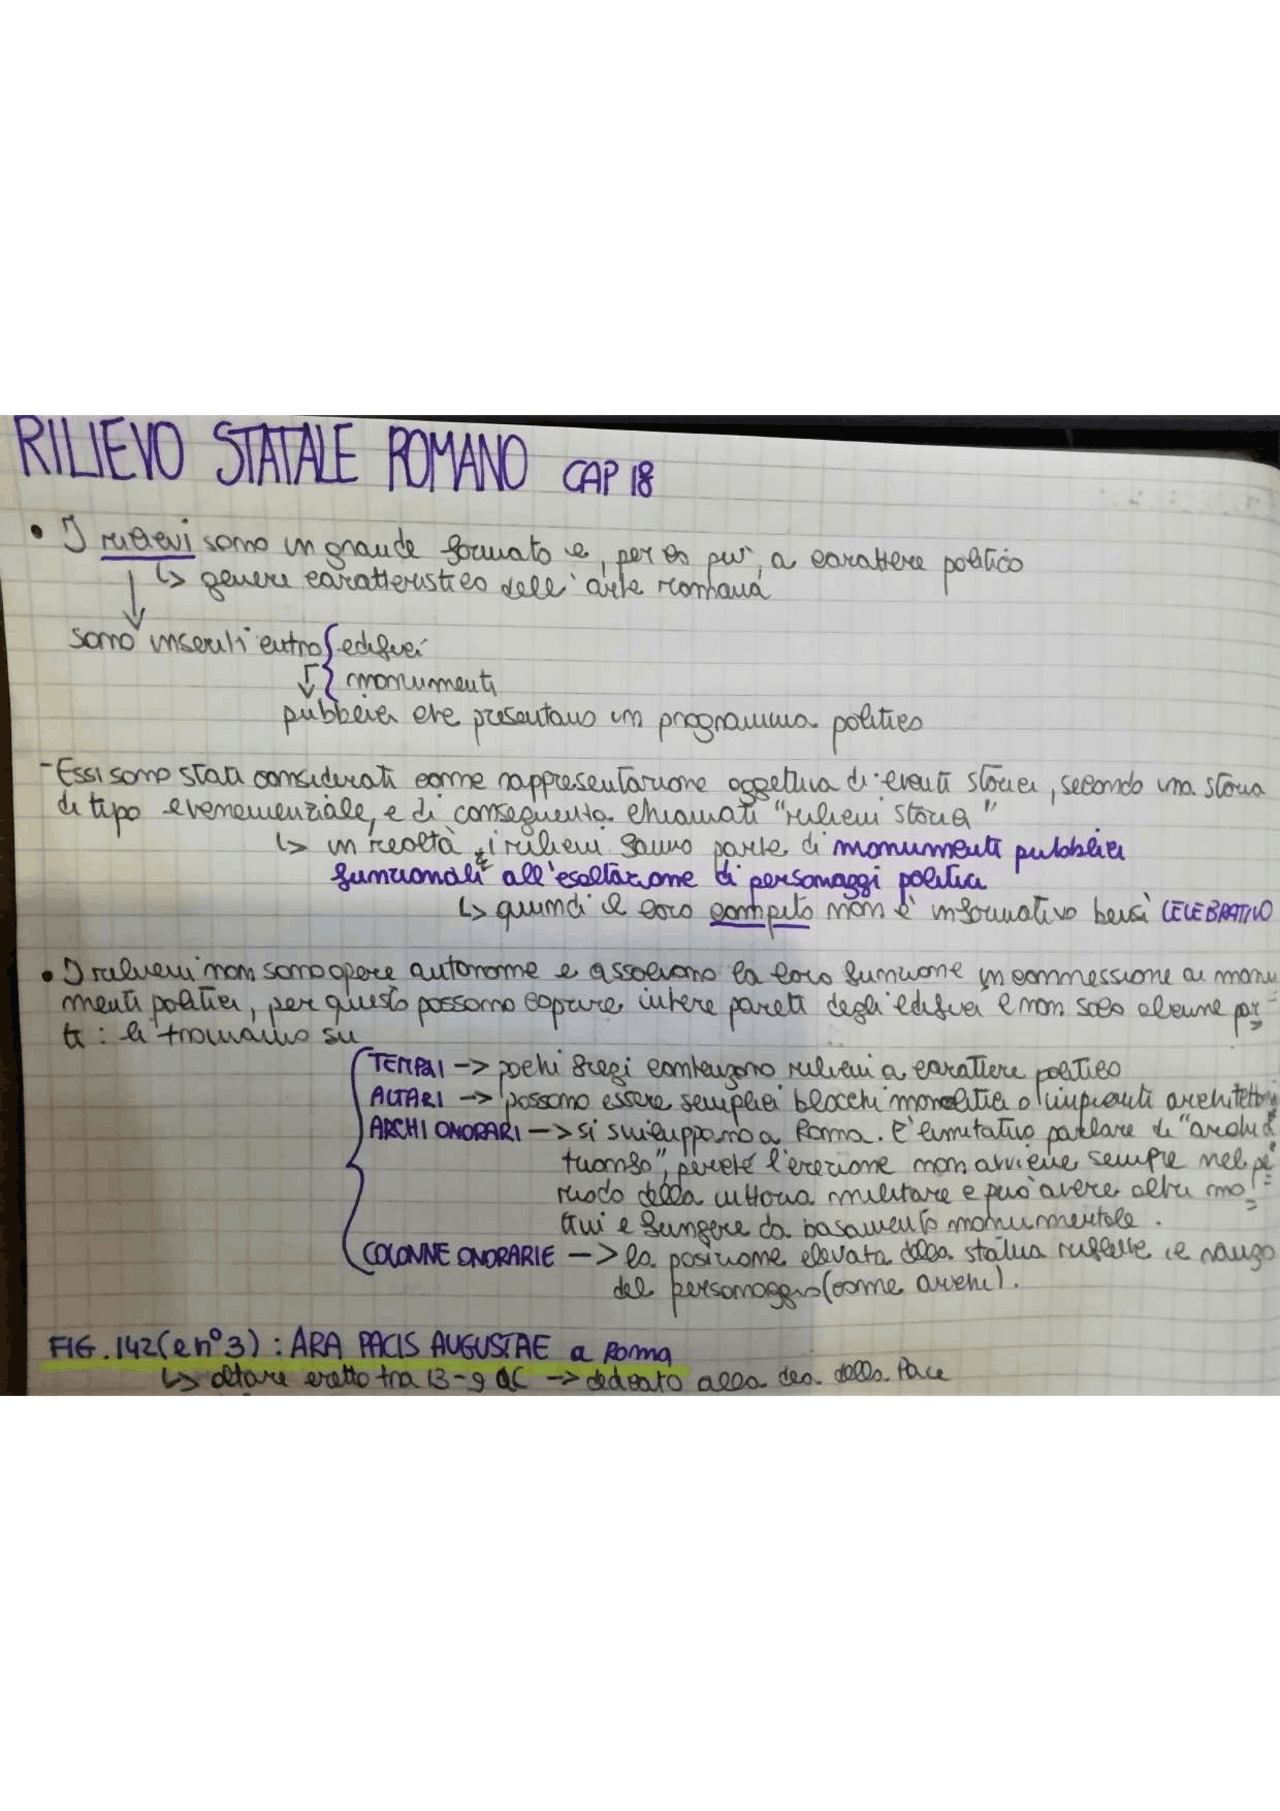 RILIEVO STATALE ROMANO CAP 18
• I rilievi sono in grande formato e, per lo più, a carattere politico
↳ genere caratteristico dell'arte romana
sono inseriti entro { edifici
monumenti
pubblici che presentano un programma politico
- Essi sono stati considerati come rappresentazione oggettiva di eventi storici, secondo una storia
di tipo evenemenziale, e di conseguenza chiamati "rilievi storici"
↳ in realtà i rilievi fanno parte di monumenti pubblici
funzionali all'esaltazione di personaggi politici
↳ quindi il loro compito non è informativo bensì CELEBRATIVO
• I rilievi non sono opere autonome e assolvono la loro funzione in connessione ai monu
menti politici, per questo possono coprire intere pareti degli edifici e non solo alcune par-
ti: li troviamo su
TEMPLI -> pochi fregi contengono rilievi a carattere politico
ALTARI -> possono essere semplici blocchi monolitici o impianti architettonici
ARCHI ONORARI -> si sviluppano a Roma. E' limitativo parlare di "archi
trionfo", perché l'erezione non avviene sempre nel pe=
riodo della vittoria militare e può avere altri mo=
tivi e fungere da basamento monumentale.
COLONNE ONORARIE -> la posizione elevata della statua riflette il rango
del personaggio (come archi).
FIG. 142 (e n° 3): ARA PACIS AUGUSTAE a Roma
↳ altare eretto tra 13-9 aC -> dedicato alla dea della Pace